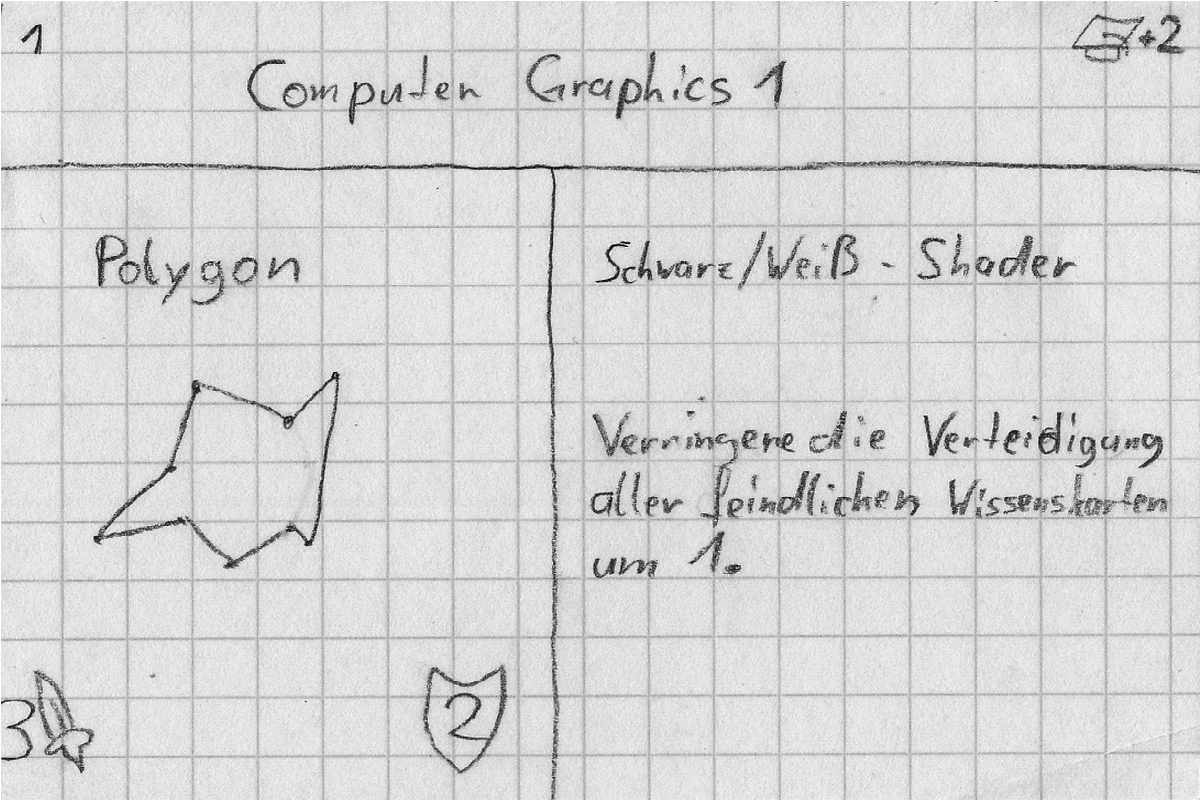 1
+2
Computer Graphics 1
Polygon
Schwarz/Weiß - Shader
Verringere die Verteidigung
aller feindlichen Wissenskarten
um 1.
3
2